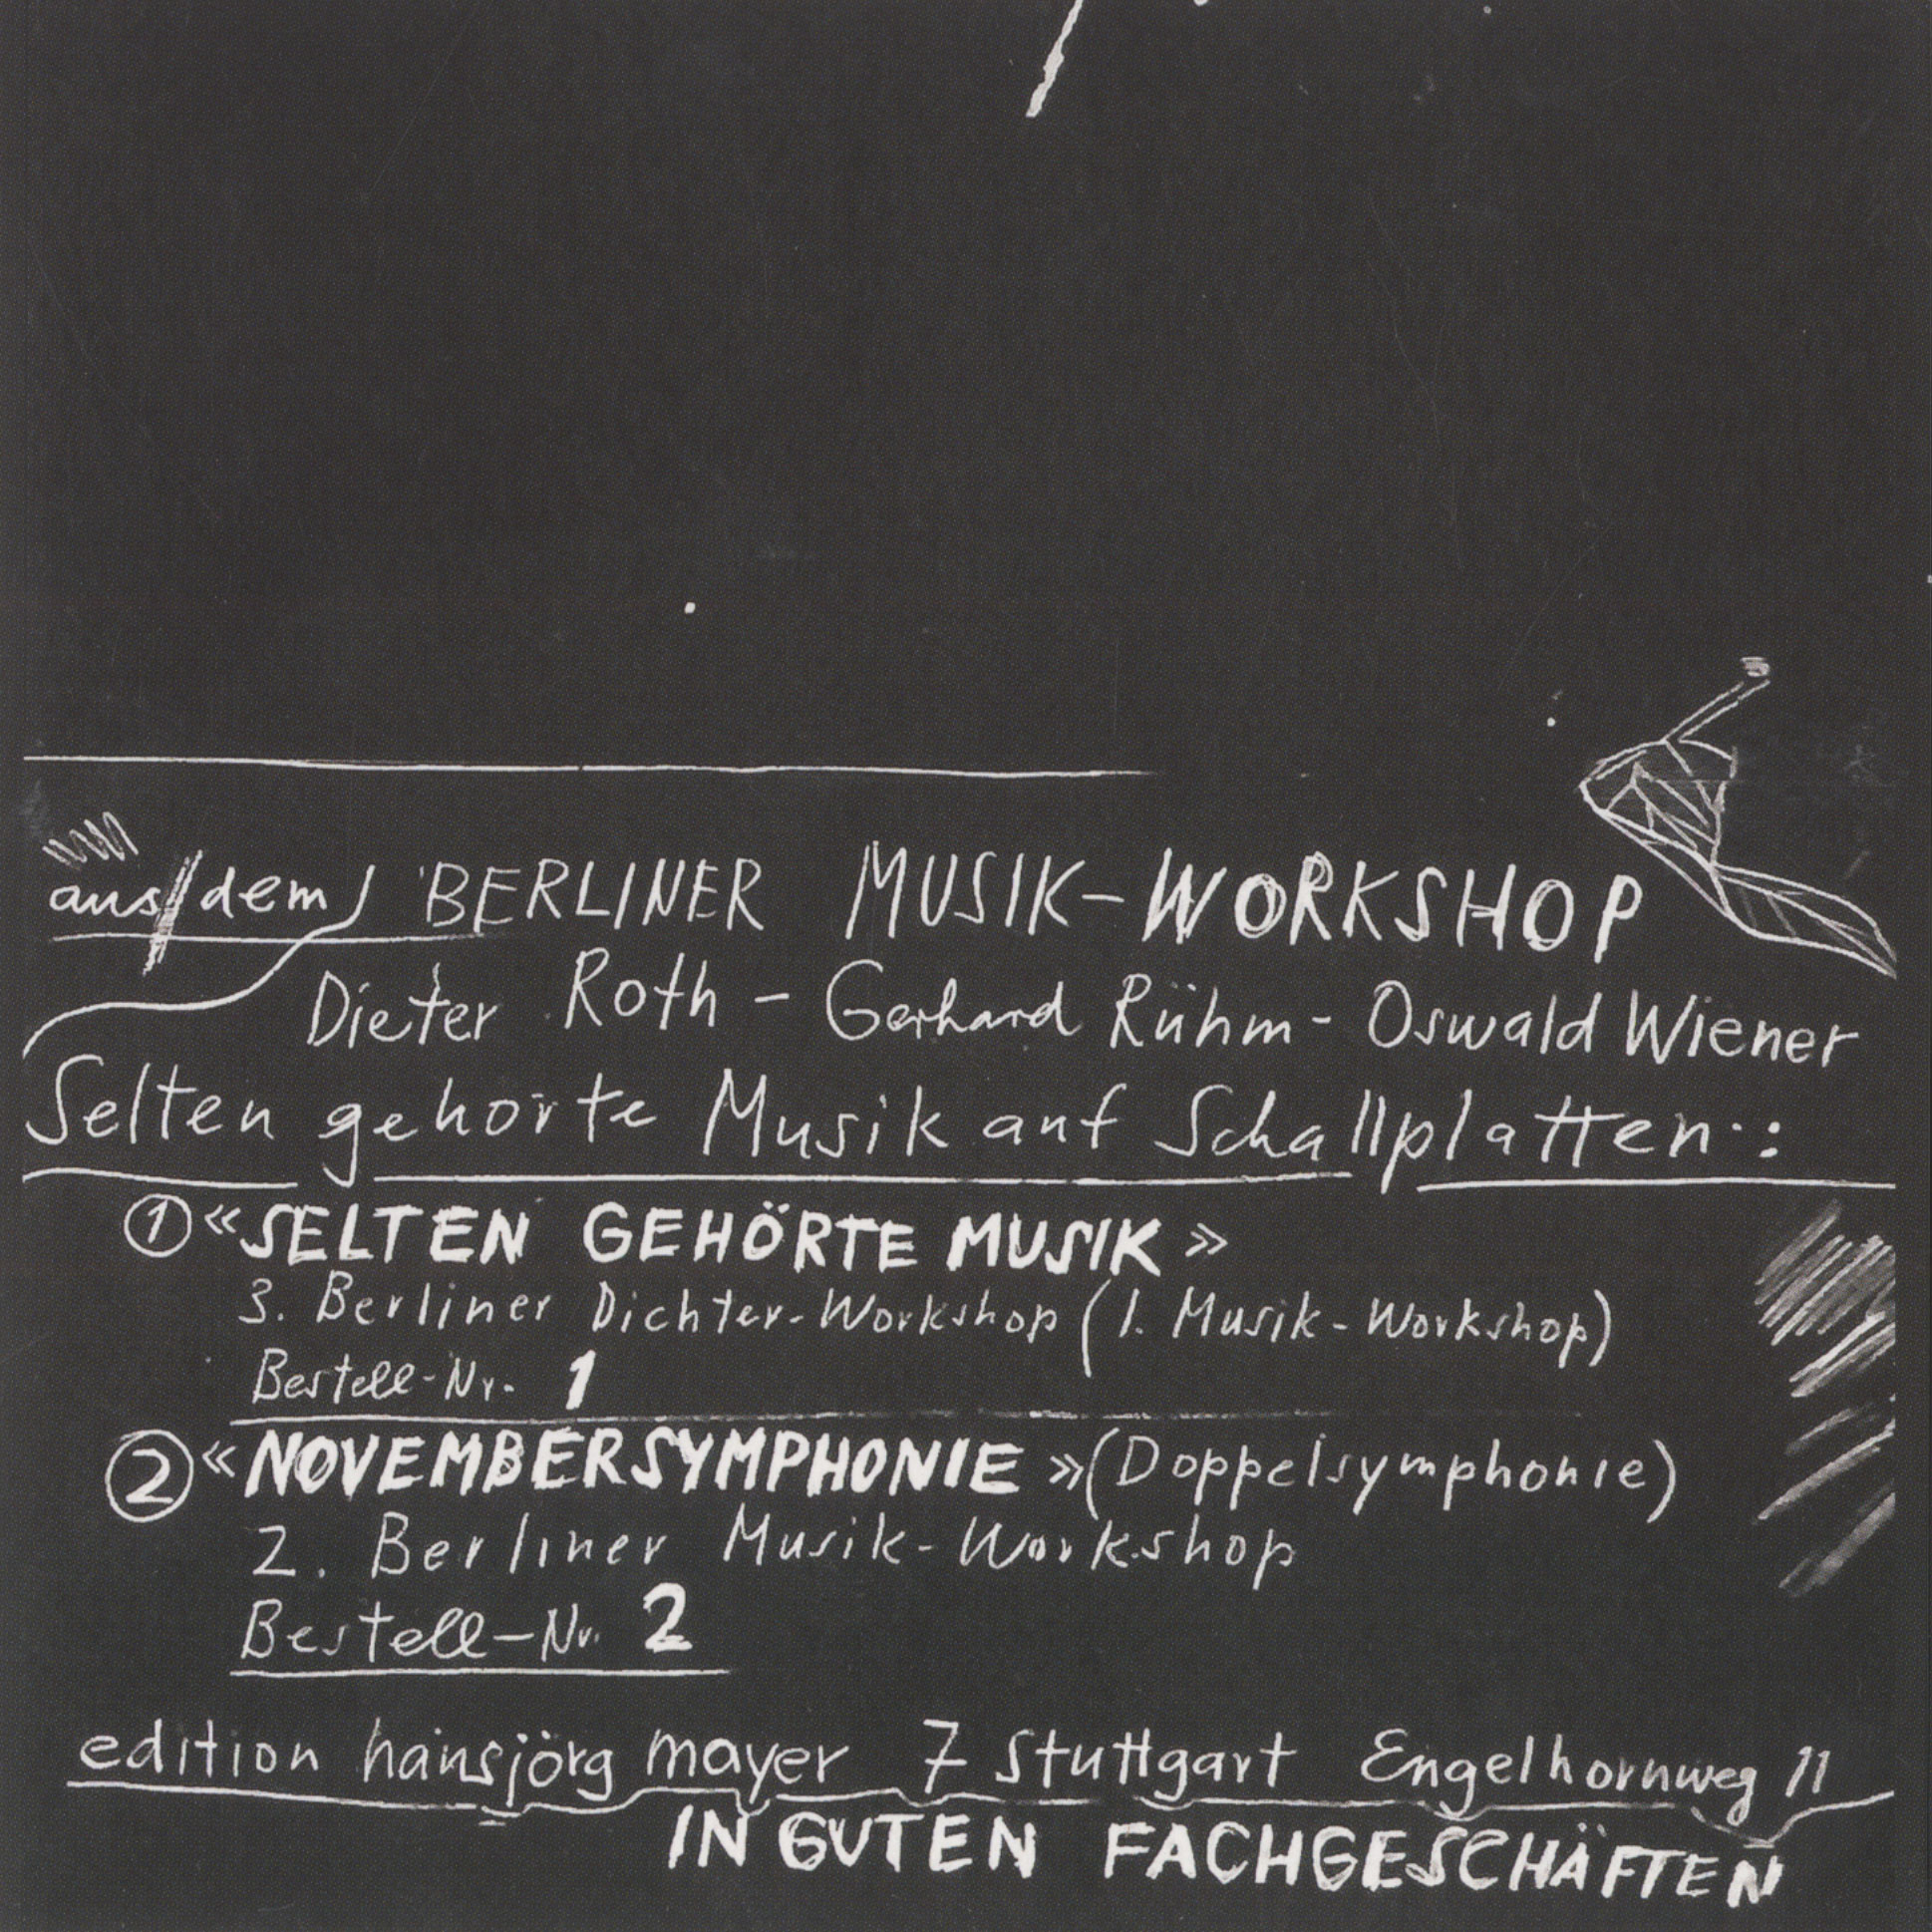 aus dem BERLINER MUSIK-WORKSHOP
Dieter Roth - Gerhard Rühm - Oswald Wiener
Selten gehörte Musik auf Schallplatten:
① «SELTEN GEHÖRTE MUSIK»
3. Berliner Dichter-Workshop (1. Musik-Workshop)
Bestell-Nr. 1
② «NOVEMBERSYMPHONIE» (Doppelsymphonie)
2. Berliner Musik-Workshop
Bestell-Nr. 2
edition hansjörg mayer 7 Stuttgart Engelhornweg 11
IN GUTEN FACHGESCHÄFTEN